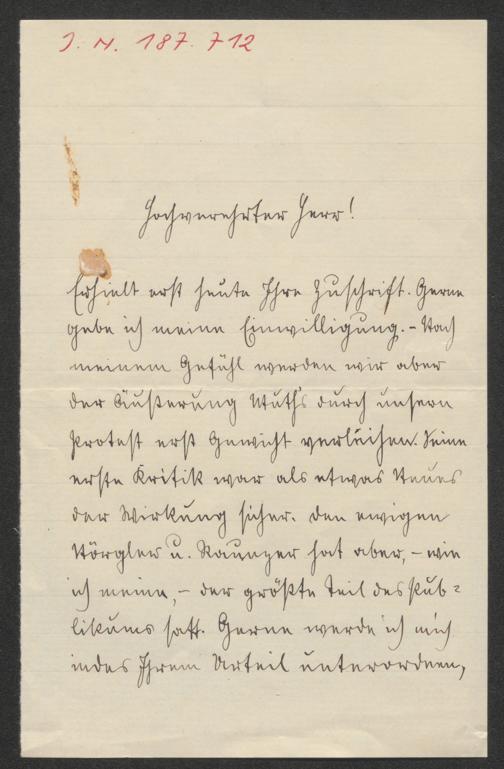 J. N. 187.712
Hochverehrter Herr!
Erhielt erst heute Ihre Zuschrift. Gerne
gebe ich meine Einwilligung. – Nach
meinem Gefühl werden wir aber
der Äußerung Wuth's durch unsern
Protest erst Gewicht verleihen. Seine
erste Kritik war als etwas Neues
der Wirkung sicher. Den ewigen
Nörgler u. Raunzer hat aber, – wie
ich meine, – der größte Teil des Pub=
likums satt. Gerne werde ich mich
indes Ihrem Urteil unterordnen,